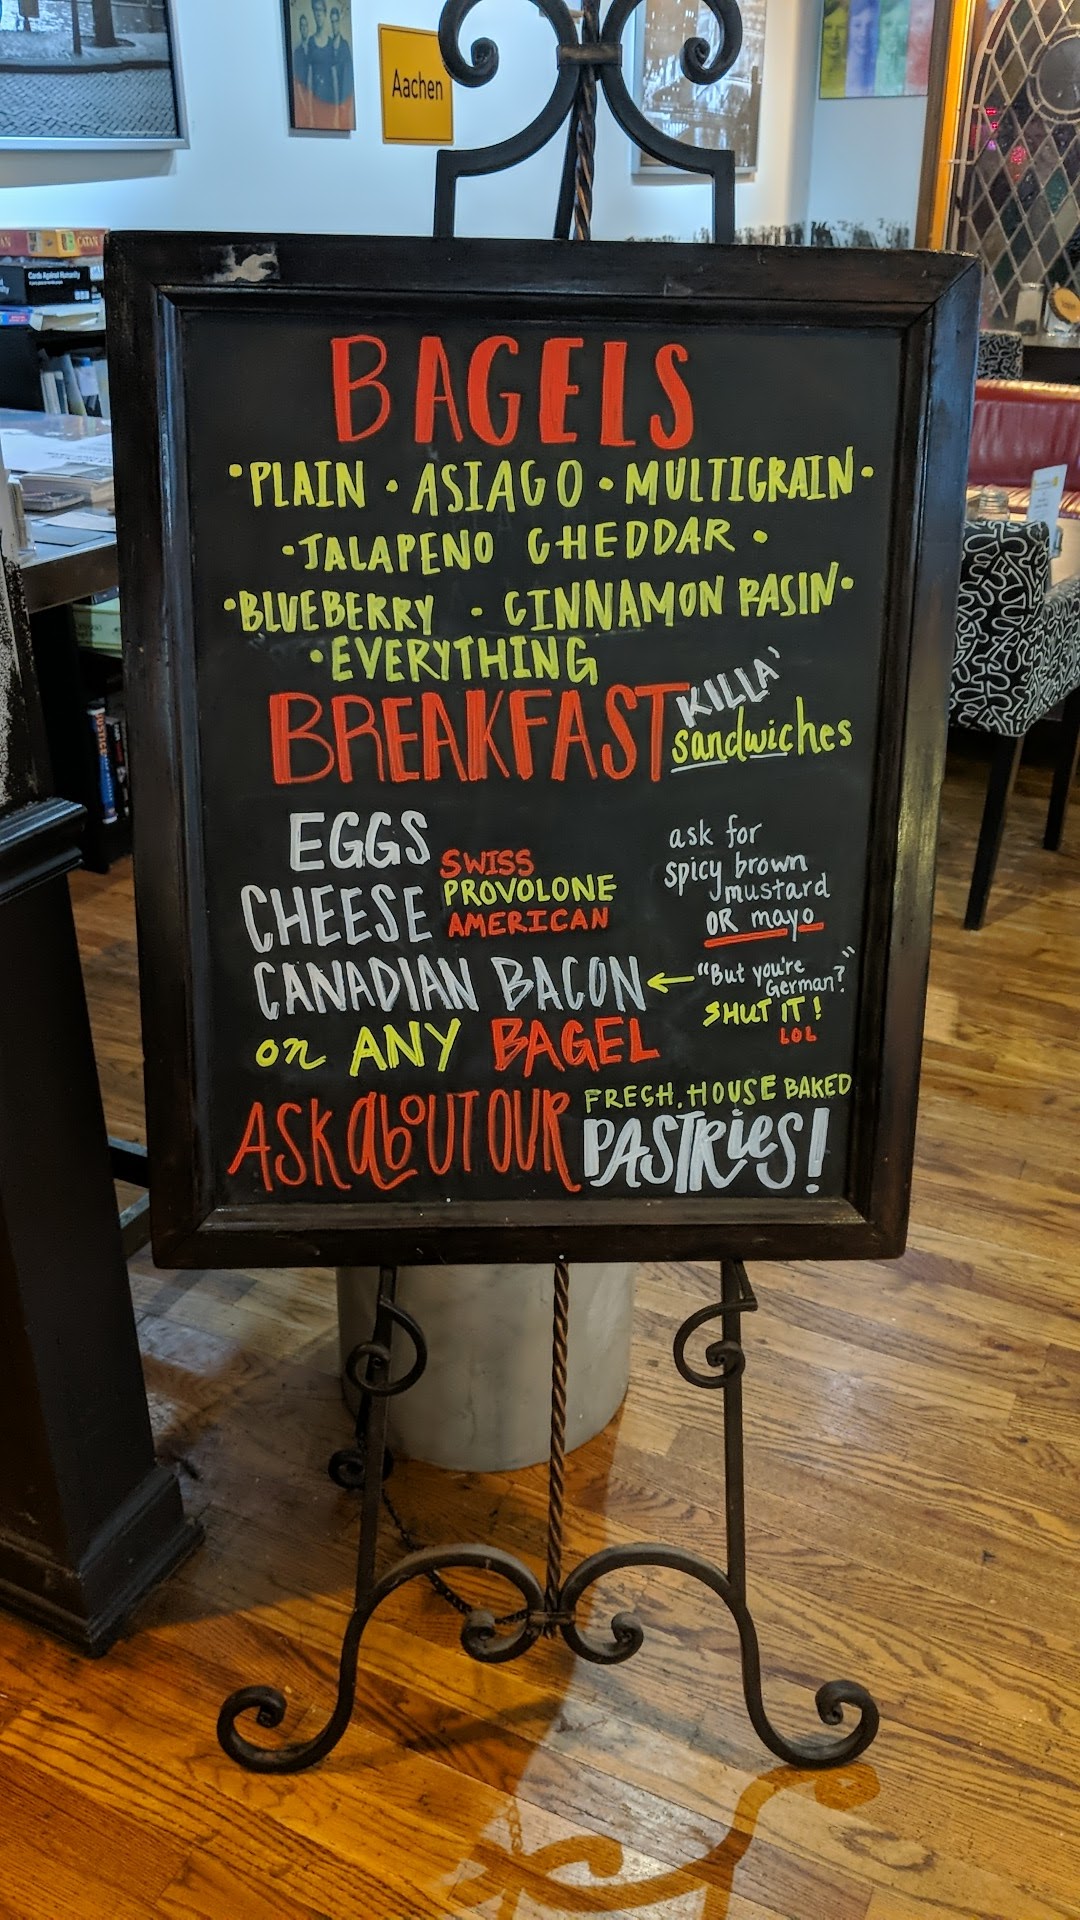 Aachen
CATAN
Cards Against Humanity
BAGELS
•PLAIN • ASIAGO • MULTIGRAIN•
•JALAPENO CHEDDAR •
•BLUEBERRY • CINNAMON RASIN•
•EVERYTHING
BREAKFAST KILLA' sandwiches
EGGS
CHEESE SWISS
PROVOLONE
AMERICAN
ask for
spicy brown
mustard
OR mayo
CANADIAN BACON ← "But you're
German?"
SHUT IT!
LOL
on ANY BAGEL
ASK aboUT OUR FRESH, HOUSE BAKED
PASTRieS!
JUSTICE